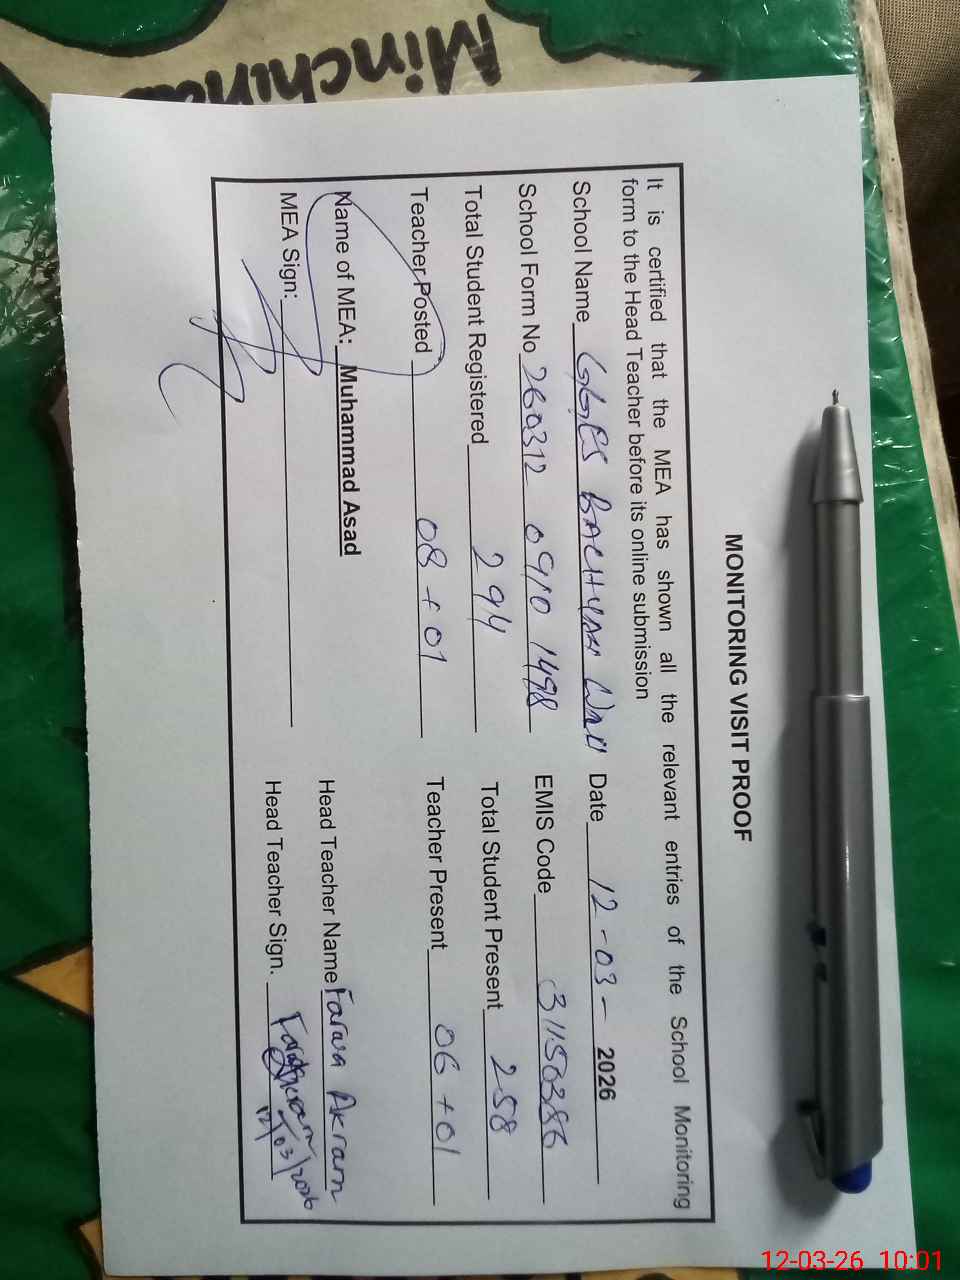 Minchina
MONITORING VISIT PROOF
It is certified that the MEA has shown all the relevant entries of the School Monitoring
form to the Head Teacher before its online submission
School Name GGES BACHYAN Date 12-03- 2026
School Form No 260312 0910 1498 EMIS Code 31150386
Total Student Registered 294 Total Student Present 258
Teacher Posted 08+01 Teacher Present 06+01
Name of MEA: Muhammad Asad Head Teacher Name Farwa Akram
MEA Sign: Head Teacher Sign. Farwa Akram
12/03/2026
12-03-26 10:01